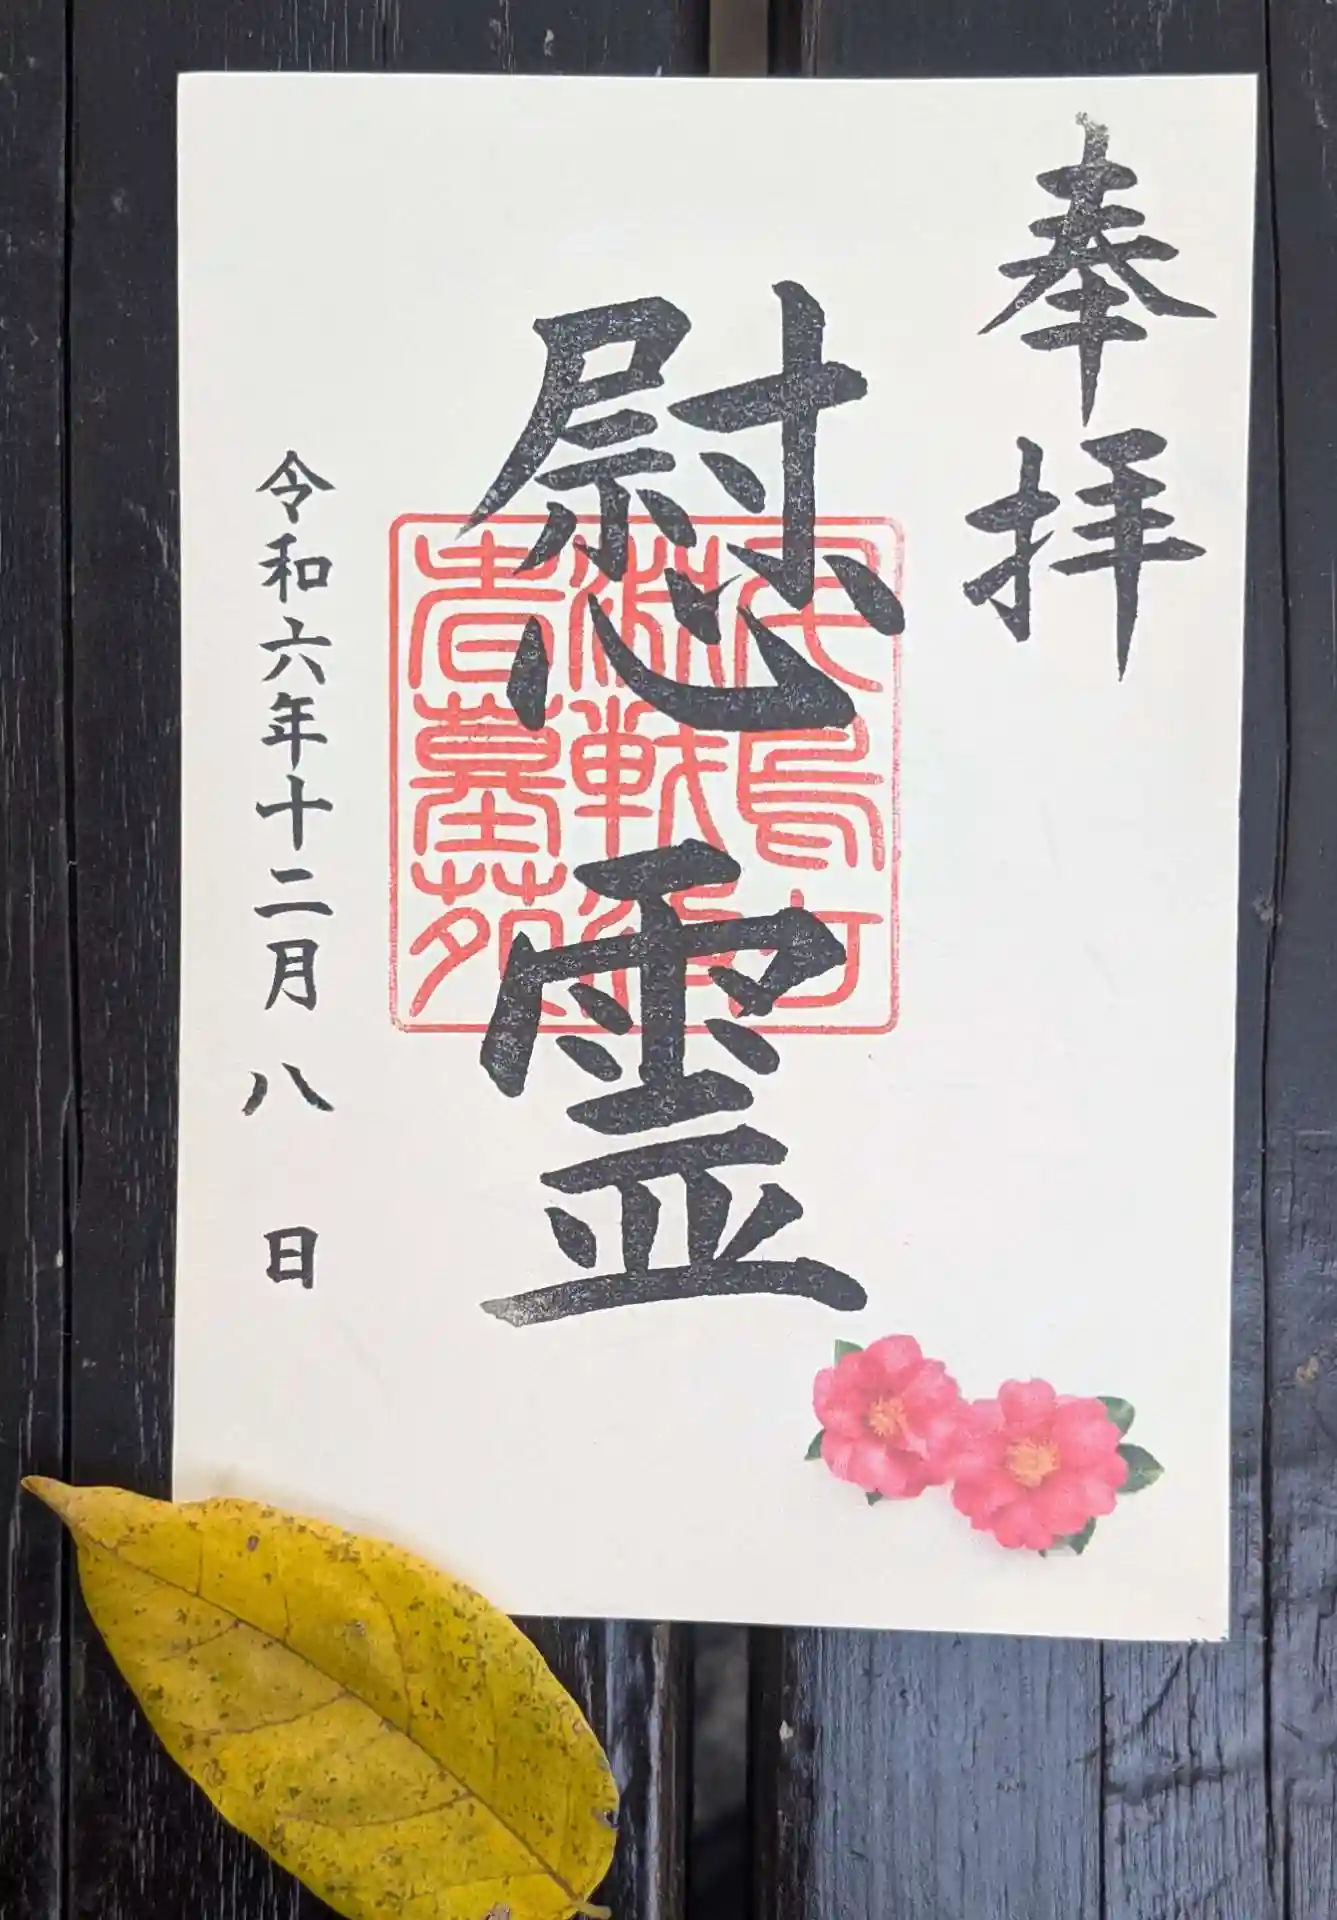 奉拝
慰霊
千鳥ケ
淵戦没
者墓苑
令和六年十二月八日